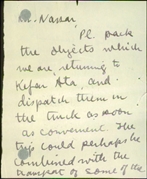 Mr. Nassar,
Pl. pack
the objects which
we are returning to
Kefar Ata, and
dispatch them in
the truck as soon
as convenient. The
trip could perhaps be
combined with the
transport of some of the